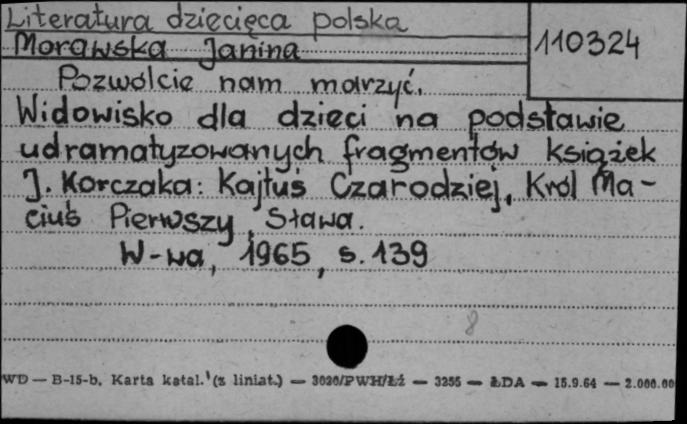 Literatura dziecięca polska
110324
Morawska Janina
Pozwólcie nam marzyć.
Widowisko dla dzieci na podstawie
udramatyzowanych fragmentów książek
J. Korczaka: Kajtuś Czarodziej, Król Ma-
ciuś Pierwszy, Sława.
W-wa, 1965, s. 139
8
WD — B-15-b, Karta katal. (z liniat.) — 3020/PWH/Łź — 3255 — ŁDA — 15.9.64 — 2.000.00